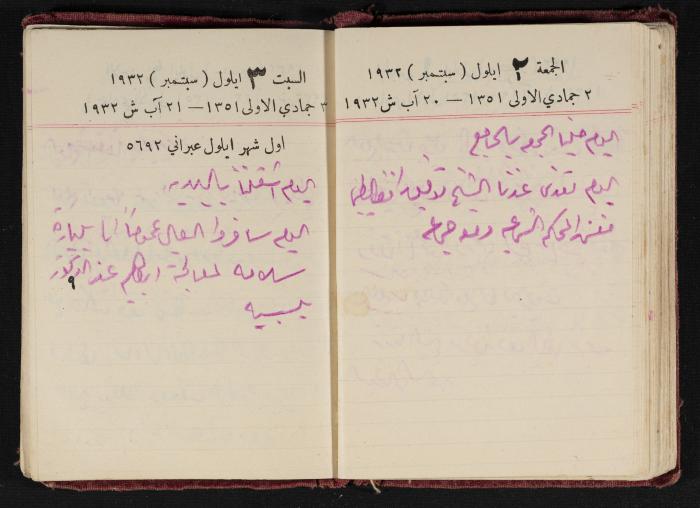 الجمعة ٢ ايلول ( سبتمبر ) ١٩٣٢
٢ جمادي الاولى ١٣٥١ — ٢٠ آب ش ١٩٣٢
اليوم صلينا الجمعه بالجامع
اليوم تغدى عندنا الشيخ توفيق
مفتش المحاكم الشرعيه ومعه جماعه
السبت ٣ ايلول ( سبتمبر ) ١٩٣٢
٣ جمادي الاولى ١٣٥١ — ٢١ آب ش ١٩٣٢
اول شهر ايلول عبراني ٥٦٩٢
اليوم اشتغلنا بالبلديه
اليوم سافروا العيال
سلامه لمعالجة ابراهيم عند الدكتور
٩